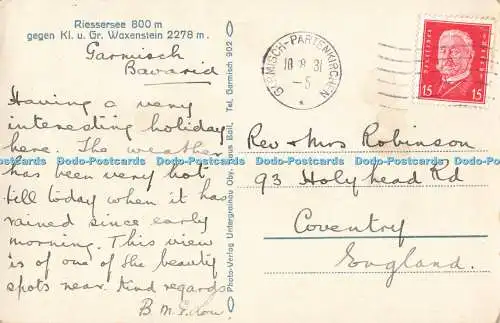 Riessersee 800 m
gegen Kl. u. Gr. Waxenstein 2278 m.
Garmisch
Bavaria
Having a very
interesting holiday
here. The weather
has been very hot
till today when it has
rained since early
morning. This view
is of one of the beauty
spots near. Kind regards
B. M.
Photo-Verlag Untergrainau Oby. Tel. Garmisch 902
GARMISCH-PARTENKIRCHEN
10 8 31
-5
15 15
Rev & Mrs Robinson
93 Holyhead Rd
Coventry
England.
Dodo-Postcards Dodo-Postcards Dodo-Postcards Dodo-Postcards Dodo-Postcards